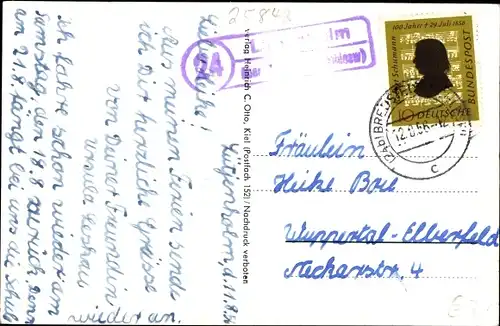 25842
24
verlag Heinrich C. Otto, Kiel (Postfach 152) / Nachdruck verboten
100. Jahre † 29. Juli 1956
DEUTSCHE
BUNDESPOST
10
(24b) BREDSTEDT
12.8.56
c
Lütjenholm, d. 11.8.56
Liebe Heike!
Aus meinen Ferien sende
ich Dir herzliche Grüsse
von Deiner Freundin
Ursula
Ich fahre schon wieder am
Samstag, den 18.8. zurück, denn
am 21.8. fängt bei uns die Schule
wieder an.
Fräulein
Heike
Wuppertal-Elberfeld
Neckarstr. 4